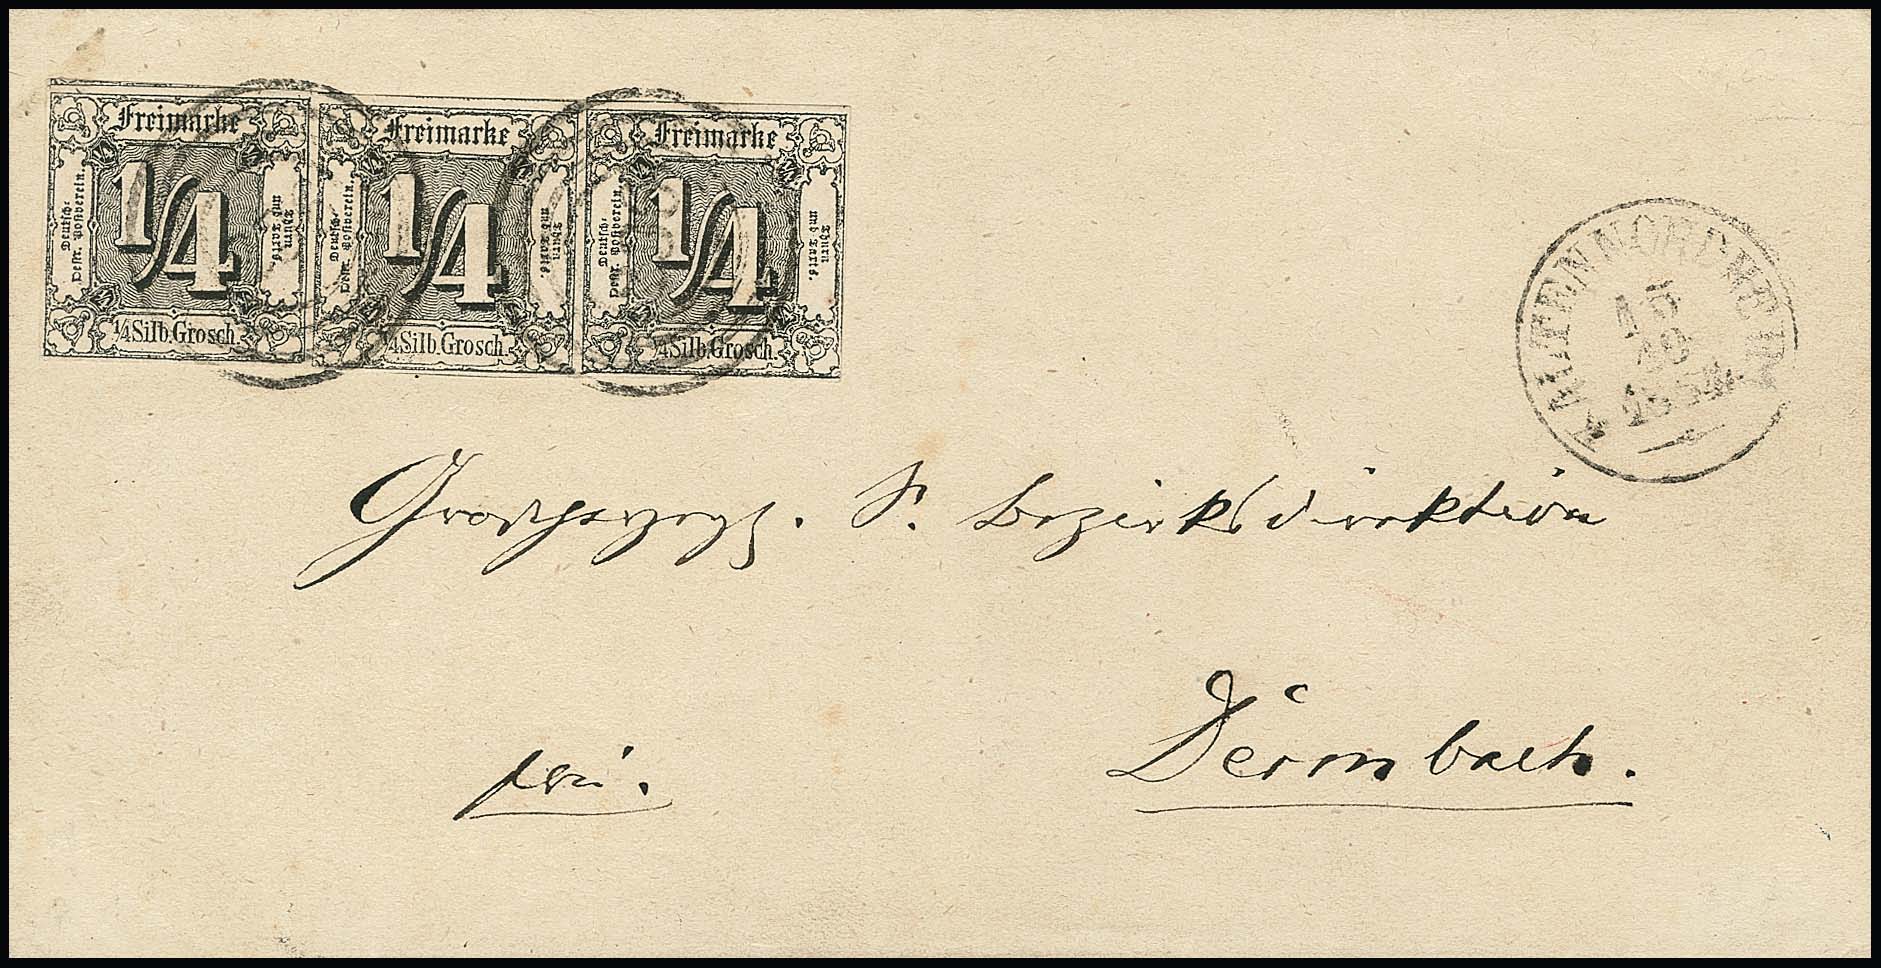 Freimarke Freimarke Freimarke
Deutsch- Oestr. Postverein. 1/4 Thurn und Taxis. Deutsch- Oestr. Postverein. 1/4 Thurn und Taxis. Deutsch- Oestr. Postverein. 1/4 Thurn und Taxis.
1/4 Silb. Grosch. 1/4 Silb. Grosch. 1/4 Silb. Grosch.
KALTENNORDHEIM
15
Großherzogl. S. Bezirksdirektion
Dermbach.
frei.